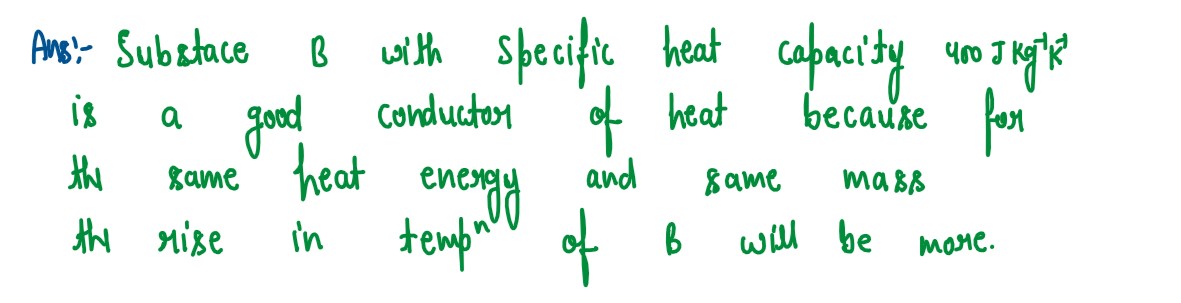 Ans:- Substace B with specific heat capacity 400 J Kg⁻¹K⁻¹
is a good conductor of heat because for
th same heat energy and same mass
th rise in tempⁿ of B will be more.